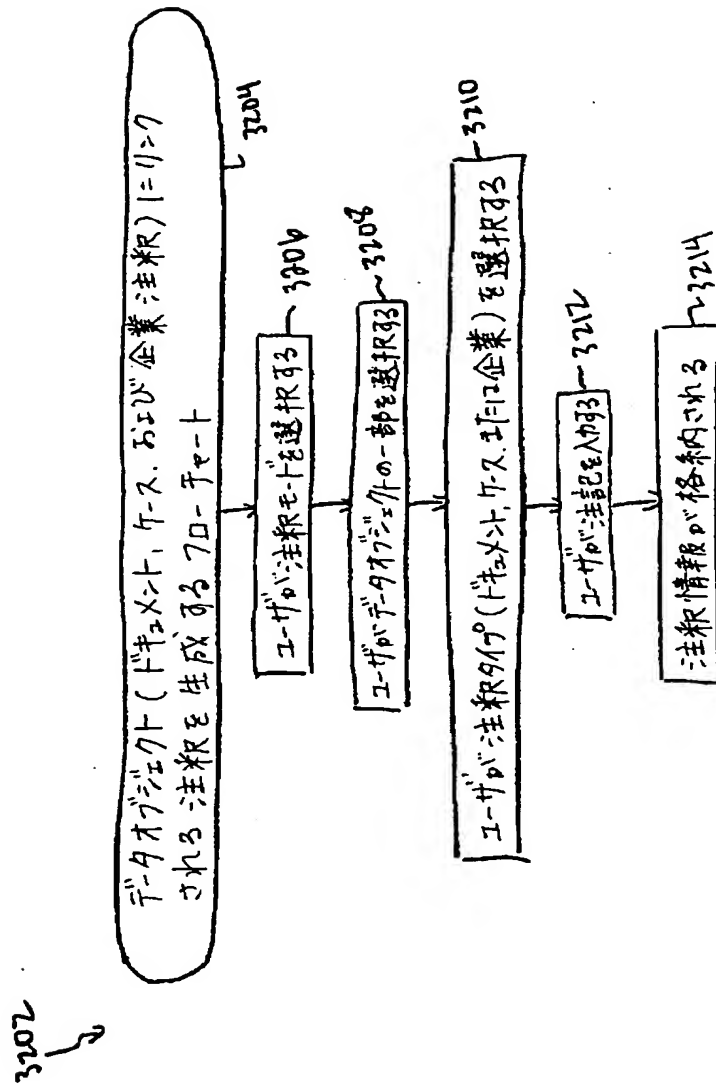 3202
データオブジェクト(ドキュメント,ケース,および企業注釈)にリンク
される注釈を生成するフローチャート
3204
ユーザが注釈モードを選択する
3206
ユーザがデータオブジェクトの一部を選択する
3208
ユーザが注釈タイプ(ドキュメント,ケース,または企業)を選択する
3210
ユーザが注記を入力する
3212
注釈情報が格納される
3214